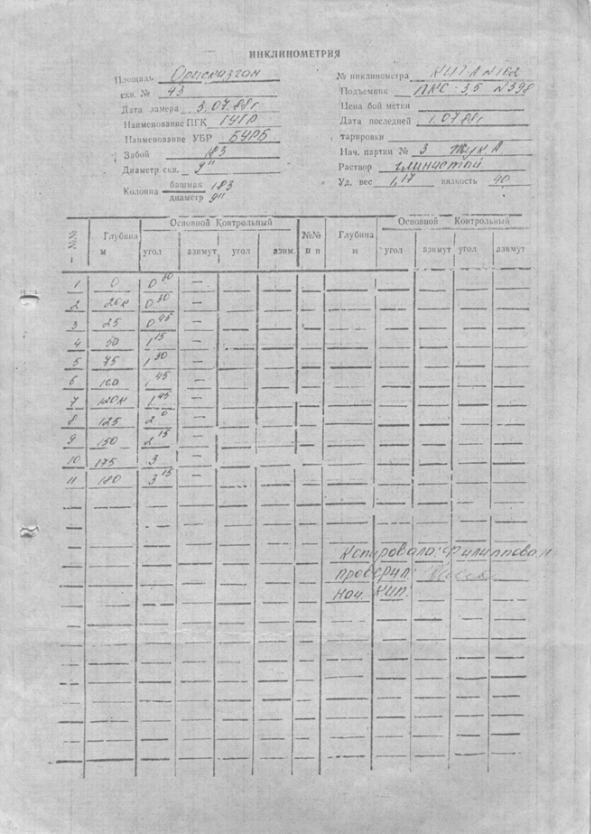 ИНКЛИНОМЕТРИЯ
Площадь
скв. № 43
Дата замера 3.07.88г
Наименование ПГК ГУГР
Наименование УБР БУРБ
Забой 183
Диаметр скв. 9"
Колонна башмак 183
диаметр 9"
№ инклинометра КИТ А №162
Подъемник ПКС-3,5 №398
Цена бой метки
Дата последней 1.07.88г
тарировки
Нач. партии № 3
Раствор глинистой
Уд. вес 1,17 вязкость 40
№№ Глубина м Основной Контрольный №№ п п Глубина м Основной Контрольный
угол азимут угол азим. угол азимут угол азимут
1 0 0 30 —
2 20к 0 30 —
3 25 0 45 —
4 50 1 15 —
5 75 1 30 —
6 100 1 45 —
7 120к 1 45 —
8 125 2 0 —
9 150 2 15 —
10 175 3 —
11 180 3 15 —
Копировала: Филиппова
Проверил:
Нач. КИП: